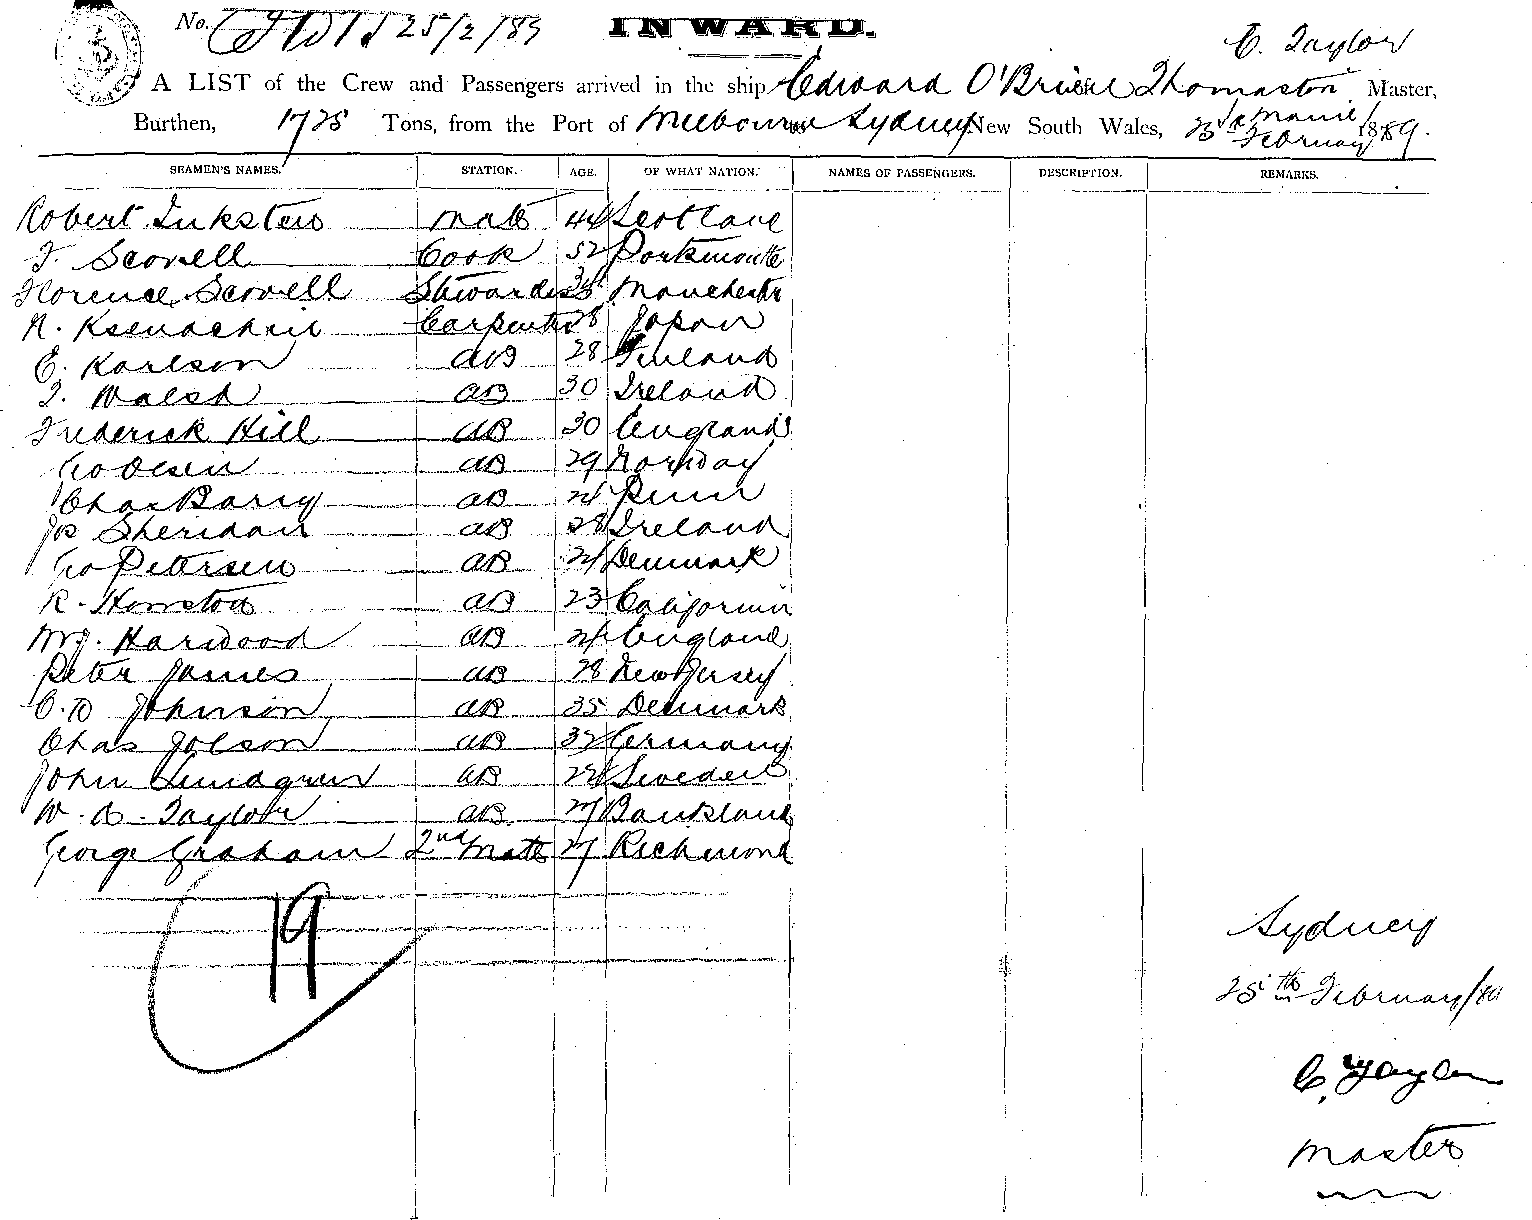 No. 25/2/89
INWARD.
C. Taylor
A LIST of the Crew and Passengers arrived in the ship Edward O'Brien Thomaston Master,
Burthen, 1725 Tons, from the Port of Melbourne to Sydney New South Wales, 25th February 1889.
SEAMEN'S NAMES. STATION. AGE. OF WHAT NATION. NAMES OF PASSENGERS. DESCRIPTION. REMARKS.
Robert Inkster Mate 44 Scotland
F. Scovell Cook 52 Portsmouth
Florence Scovell Stewardess 35 Manchester
Carpenter 28 Japan
E. Karlson AB 28 Finland
T. Walsh AB 30 Ireland
Frederick Hill AB 30 England
Geo Olsen AB 29 Norway
Chas Barry AB 24
Js Sheridan AB 28 Ireland
Geo Petersen AB 24 Denmark
R. AB 23 California
Wm J. Harwood AB 24 England
Peter James AB 28 New Jersey
C. D Johnson AB 35 Denmark
Chas Jolson AB 32 Germany
John Lindgren AB 22 Sweden
W. B. Taylor AB 27
George Graham 2nd Mate 27 Richmond
19
Sydney
25th February/89
C. Taylor
Master